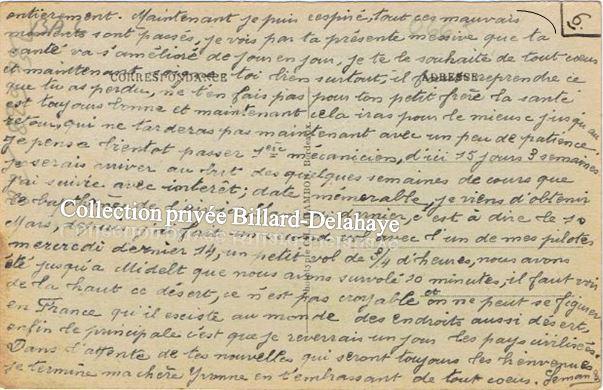 6.
entièrement. Maintenant je puis respiré, tout ces mauvais
moments sont passés, je vois par ta présente missive que ta
santé va s'amélioré de jour en jour, je te le souhaite de tout cœur
et maintenant toi bien surtout, il faut reprendre ce
CORRESPONDANCE
ADRESSE
que tu as perdu, ne t'en fais pas pour ton petit frère la santé
est toujours bonne et maintenant cela iras pour le mieux jusqu'au
retour, qui ne tarderas pas maintenant avec un peu de patience.
Je pense bientot passer 1ère mécanicien, d'ici 15 jours 3 semaines
je serais arriver au but des quelques semaines de cours que
j'ai suivie avec interêt; date mémorable, je viens d'obtenir
le dernier, c'est à dire le 10
Collection privée Billard-Delahaye
Mars, avec l'un de mes pilotes
mercredi dernier 14, un petit vol de 3/4 d'heures, nous avons
été jusqu'a Midelt que nous avons survolé 10 minutes, il faut voir
de la haut ce désert, ce n'est pas croyable et on ne peut se figurer
en France qu'il esciste au monde des endroits aussi désert,
enfin le principale c'est que je reverrais un jour les pays civilisées.
Dans l'attente de tes nouvelles qui seront toujours les bienvenues
je termine ma chère Yvonne en t'embrassant de tout cœur.